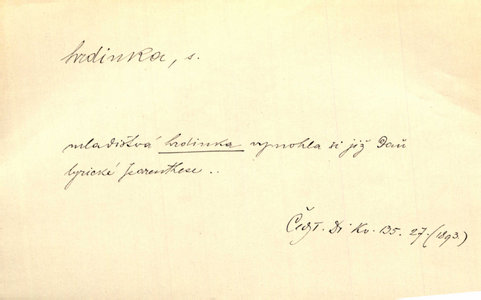 hrdinka, s.
mladistvá hrdinka vymohla si již daň
lyrické parenthese ..
Kv. 135. 27. (1893.)